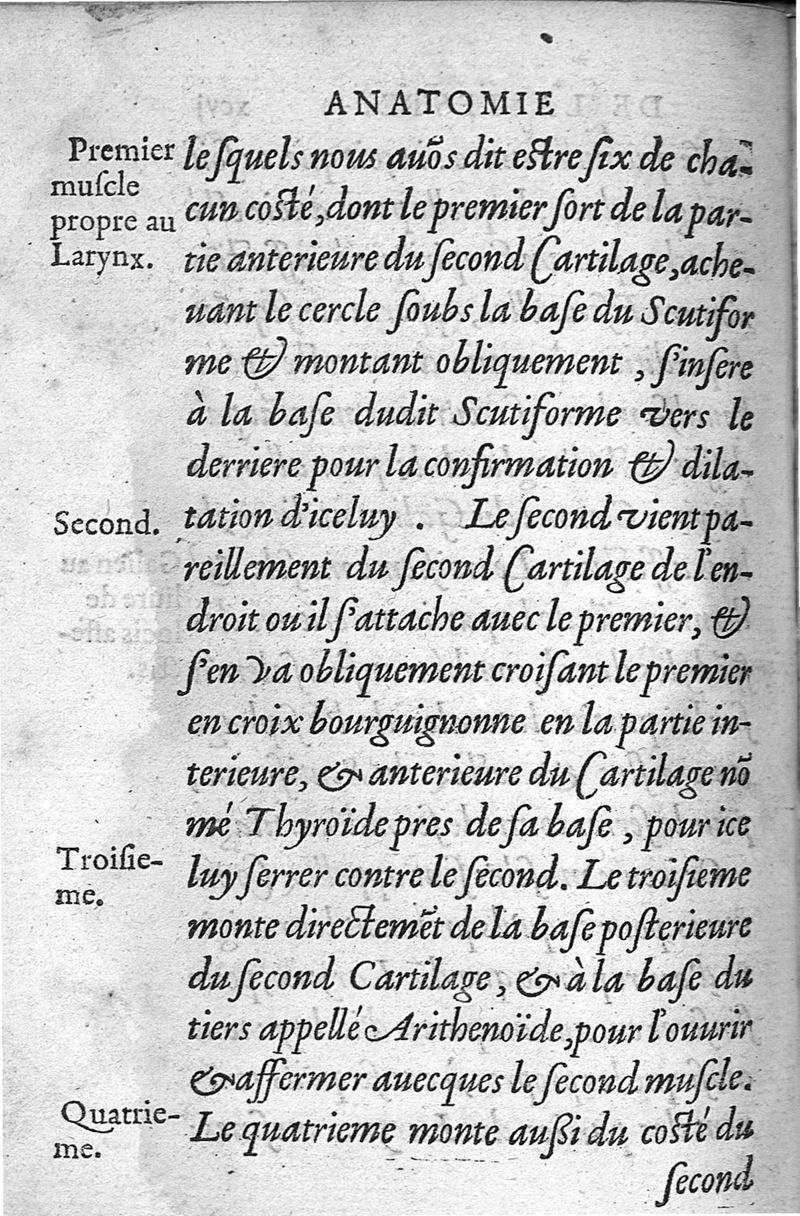 ANATOMIE
Premier
muſcle
propre au
Larynx.
leſquels nous auõs dit eſtre ſix de cha-
cun coſté, dont le premier ſort de la par-
tie anterieure du ſecond Cartilage, ache-
uant le cercle ſoubs la baſe du Scutifor
me & montant obliquement , ſ'inſere
à la baſe dudit Scutiforme vers le
derriere pour la confirmation & dila-
Second.
tation d'iceluy . Le ſecond vient pa-
reillement du ſecond Cartilage de l'en-
droit ou il ſ'attache auec le premier, &
ſ'en va obliquement croiſant le premier
en croix bourguignonne en la partie in-
terieure, & anterieure du Cartilage nõ
mé Thyroïde pres de ſa baſe , pour ice
Troiſie-
me.
luy ſerrer contre le ſecond. Le troiſieme
monte directemẽt de la baſe poſterieure
du ſecond Cartilage, & à la baſe du
tiers appellé Arithenoïde, pour l'ouurir
& affermer auecques le ſecond muſcle.
Quatrie-
me.
Le quatrieme monte außi du coſté du
ſecond